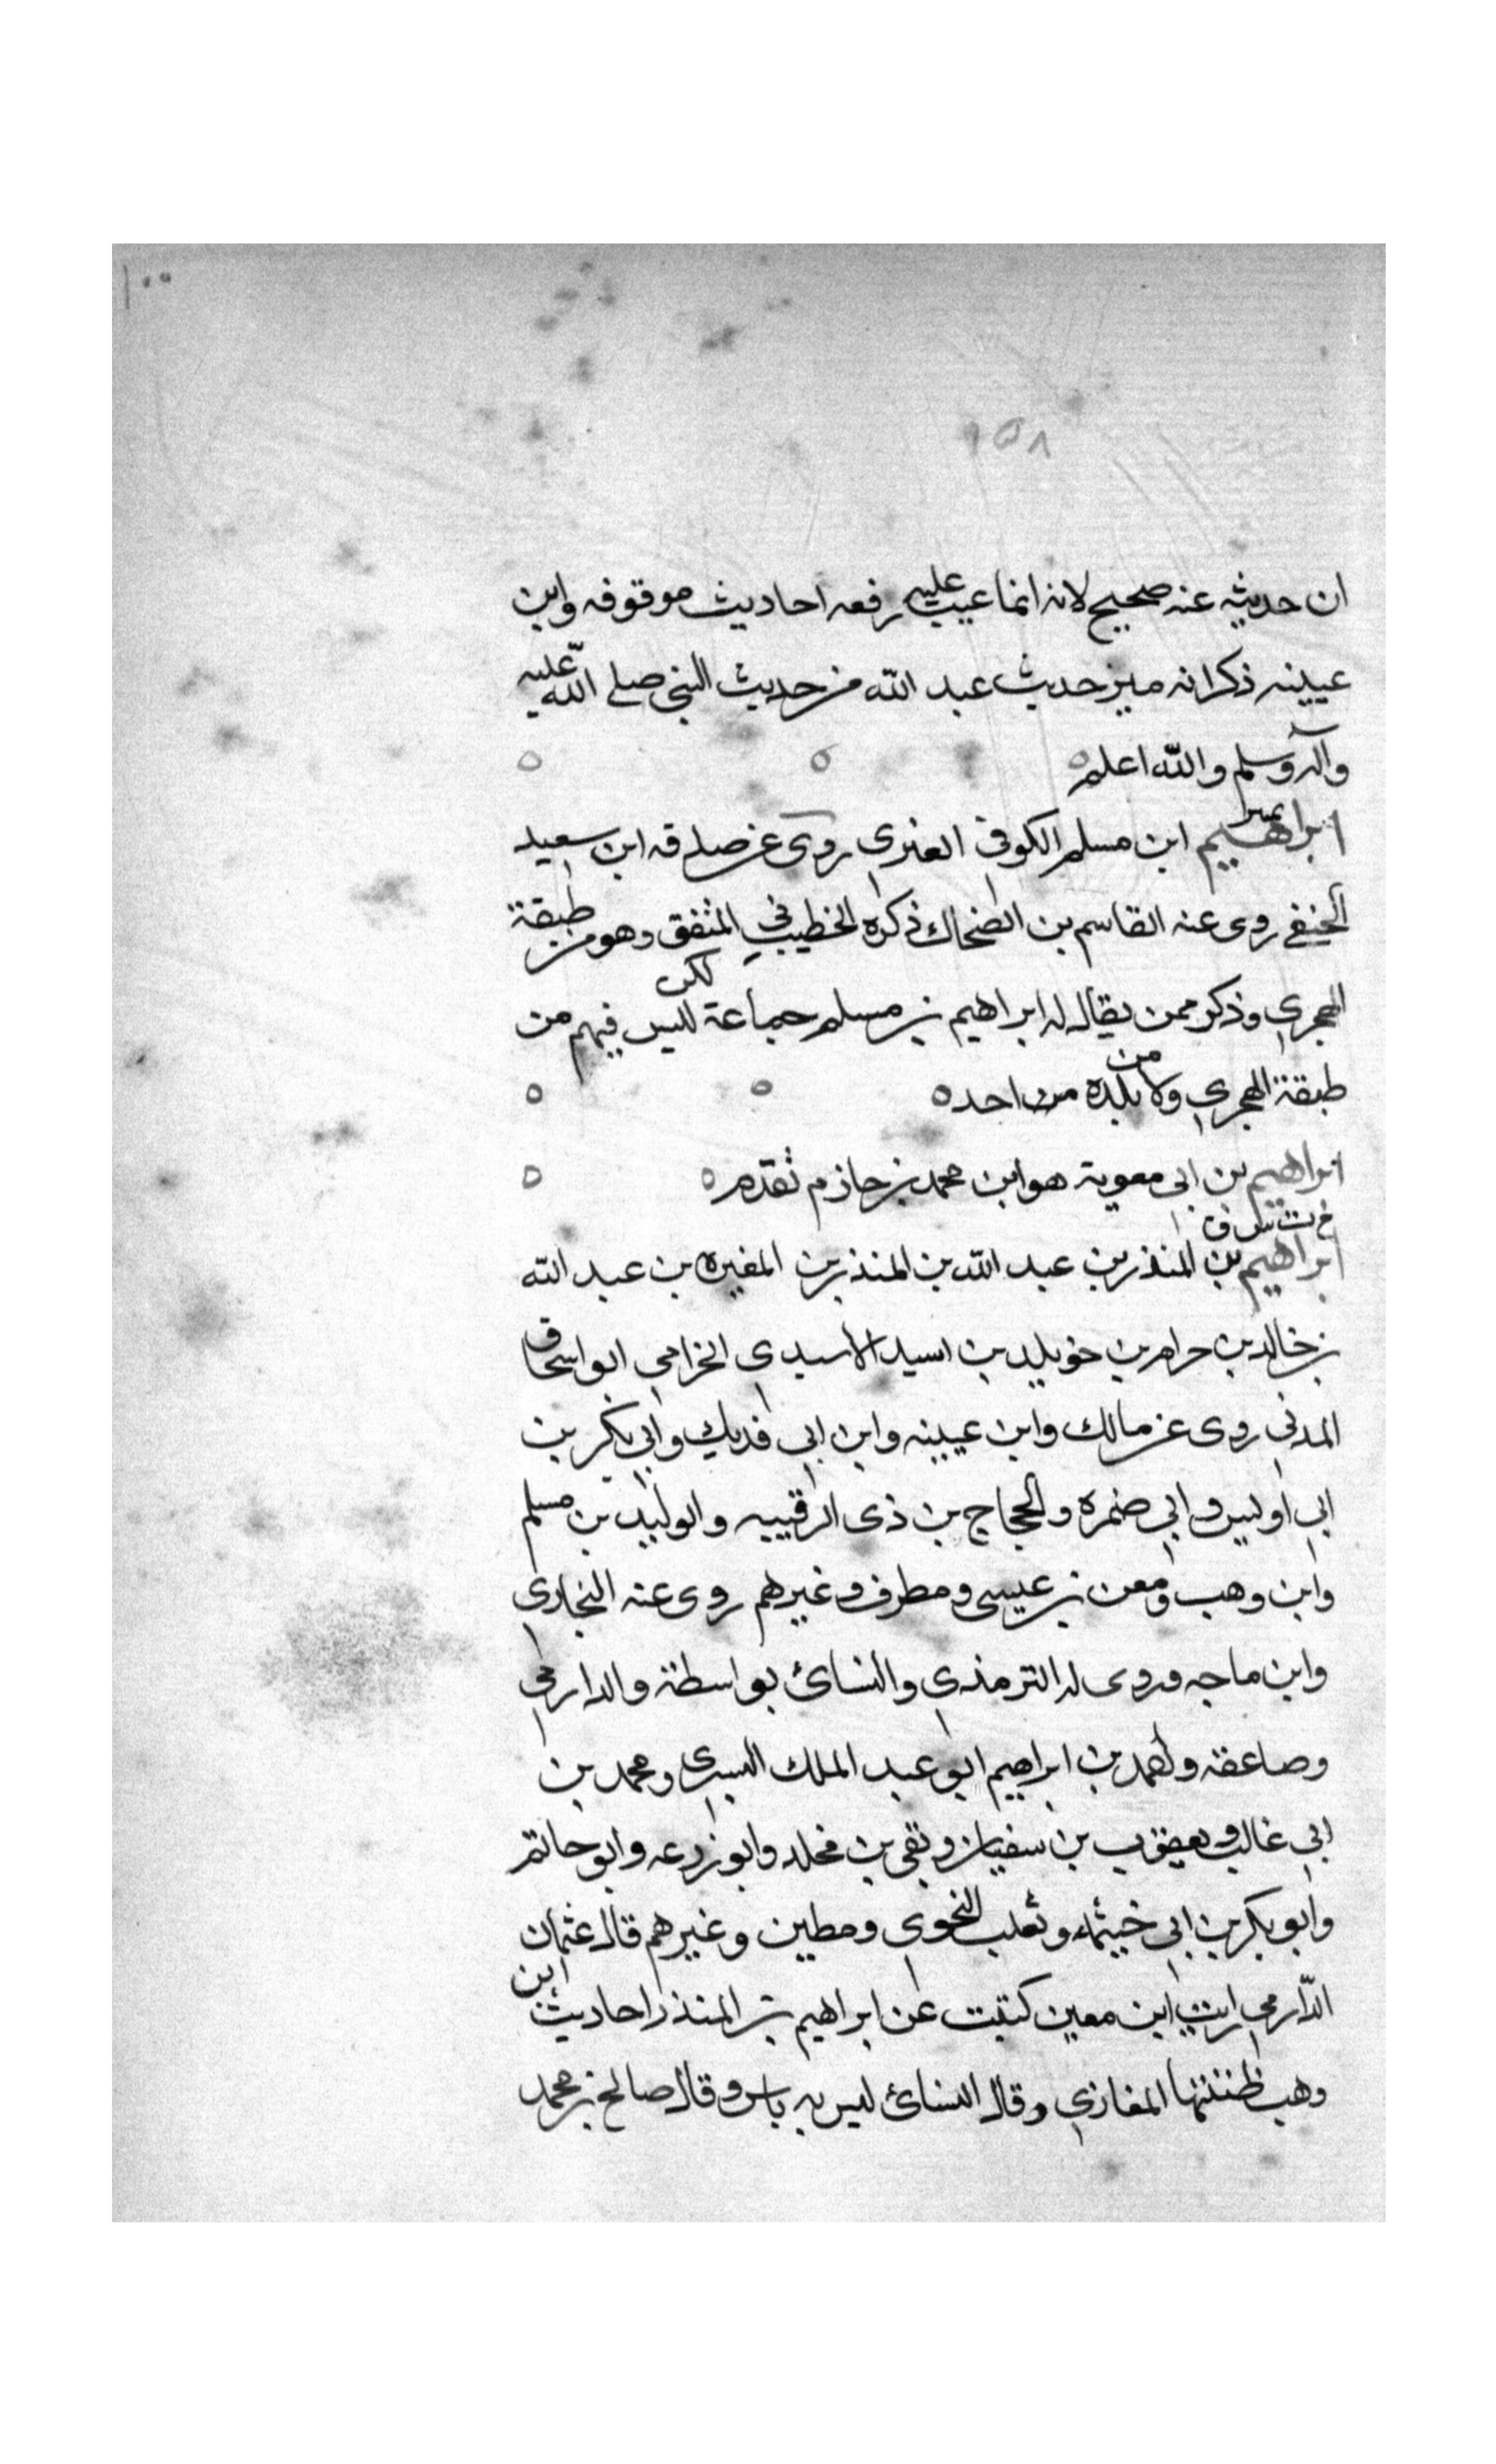 ١٠٠
١٥٨
ان حديثه عنه صحيح لانه انما عيب عليه رفعه احاديث موقوفه وابن
عيينه ذكر انه ميز حديث عبد الله من حديث النبي صلى الله عليه
وآله وسلم والله اعلم ٥ ٥ ٥
تمييز
ابراهيم ابن مسلم الكوفي العنزي روى عن صدقه ابن سعيد
الحنفي روى عنه القاسم بن الضحاك ذكره الخطيب في المتفق وهو من طبقة
الهجري وذكر ممن يقال له ابراهيم بن مسلم جماعة لكن ليس فيهم من
طبقة الهجري ولا من بلده من احد ٥ ٥ ٥
ابراهيم بن ابي معوية هو ابن محمد بن حازم تقدم ٥ ٥
خ ت س ق
ابراهيم بن المنذر بن عبد الله بن المنذر بن المغيره بن عبد الله
بن خالد بن حرام بن خويلد بن اسيد الاسيدي الخزامي ابو اسحاق
المدني روى عن مالك وابن عيينه وابن ابي فديك وابي بكر بن
ابي اويس وابي ضمره والحجاج بن ذي الرقيبه والوليد بن مسلم
وابن وهب ومعن بن عيسى ومطرف وغيرهم روى عنه البخاري
وابن ماجه وروى له الترمذي والنسائ بواسطة والدارمي
وصاعقه واحمد بن ابراهيم ابو عبد الملك البسري ومحمد بن
ابي غالب ويعقوب بن سفيان وبقي بن مخلد وابو زرعه وابو حاتم
وابو بكر بن ابي خيثمه وثعلب النحوي ومطين وغيرهم قال عثمان
الدارمي رايت ابن معين كتبت عن ابراهيم بن المنذر احاديث ابن
وهب ظننتها المغازي وقال النسائ ليس به باس وقال صالح بن محمد